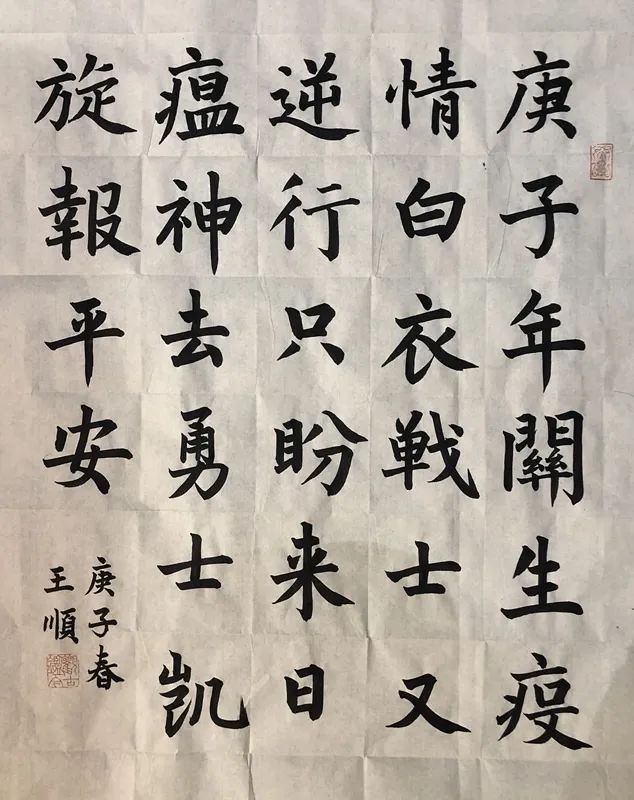 庚子年關生疫
情白衣戦士又
逆行只盼来日
瘟神去勇士凱
旋報平安
庚子春
王順